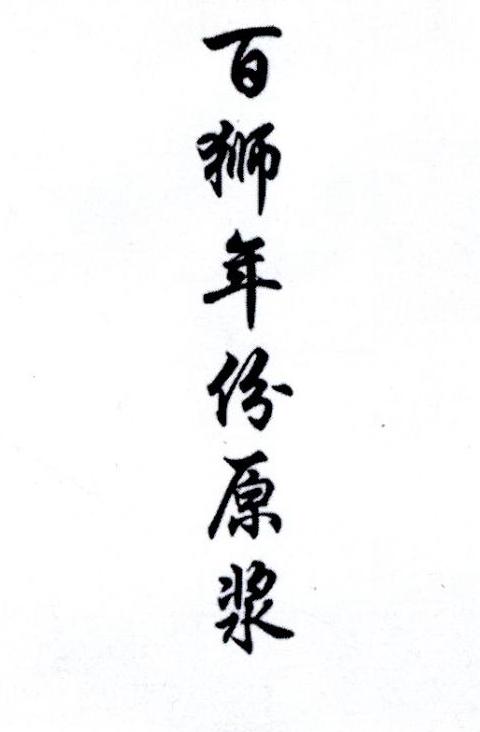 百狮年份原浆